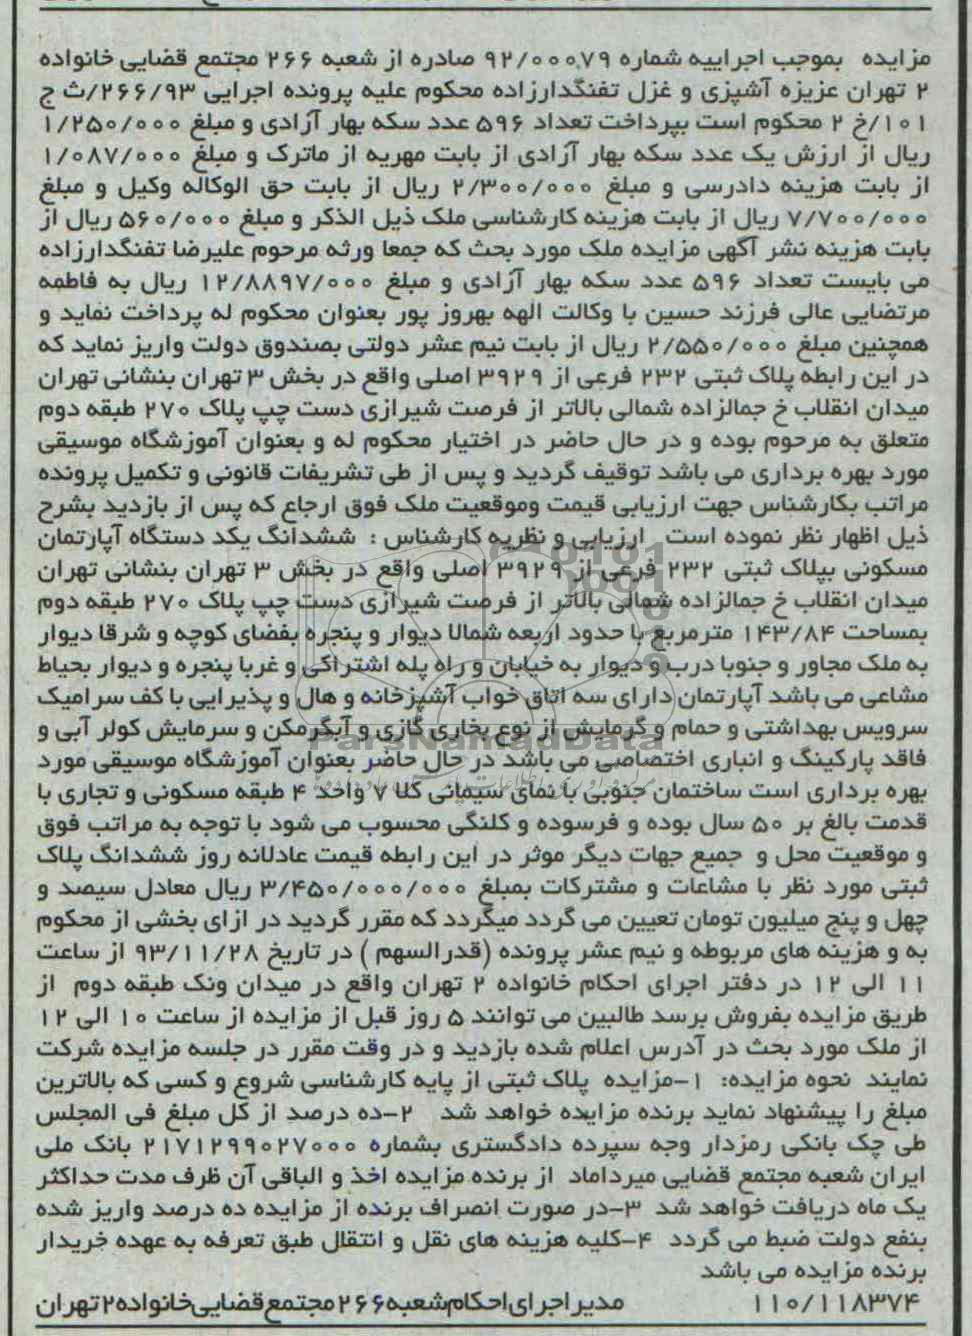 مزایده بموجب اجراییه شماره ۹۲/۰۰۰۷۹ صادره از شعبه ۲۶۶ مجتمع قضایی خانواده
۲ تهران عزیزه آشپزی و غزل تفنگدارزاده محکوم علیه پرونده اجرایی ۲۶۶/۹۳/ث ج
۱۰۱/خ ۲ محکوم است بپرداخت تعداد ۵۹۶ عدد سکه بهار آزادی و مبلغ ۱/۲۵۰/۰۰۰
ریال از ارزش یک عدد سکه بهار آزادی از بابت مهریه از ماترک و مبلغ ۱/۰۸۷/۰۰۰
از بابت هزینه دادرسی و مبلغ ۲/۳۰۰/۰۰۰ ریال از بابت حق الوکاله وکیل و مبلغ
۷/۷۰۰/۰۰۰ ریال از بابت هزینه کارشناسی ملک ذیل الذکر و مبلغ ۵۶۰/۰۰۰ ریال از
بابت هزینه نشر آگهی مزایده ملک مورد بحث که جمعا ورثه مرحوم علیرضا تفنگدارزاده
می بایست تعداد ۵۹۶ عدد سکه بهار آزادی و مبلغ ۱۲/۸۸۹۷/۰۰۰ ریال به فاطمه
مرتضایی عالی فرزند حسین با وکالت الهه بهروز پور بعنوان محکوم له پرداخت نماید و
همچنین مبلغ ۲/۵۵۰/۰۰۰ ریال از بابت نیم عشر دولتی بصندوق دولت واریز نماید که
در این رابطه پلاک ثبتی ۲۳۲ فرعی از ۳۹۲۹ اصلی واقع در بخش ۳ تهران بنشانی تهران
میدان انقلاب خ جمالزاده شمالی بالاتر از فرصت شیرازی دست چپ پلاک ۲۷۰ طبقه دوم
متعلق به مرحوم بوده و در حال حاضر در اختیار محکوم له و بعنوان آموزشگاه موسیقی
مورد بهره برداری می باشد توقیف گردید و پس از طی تشریفات قانونی و تکمیل پرونده
مراتب بکارشناس جهت ارزیابی قیمت وموقعیت ملک فوق ارجاع که پس از بازدید بشرح
ذیل اظهار نظر نموده است ارزیابی و نظریه کارشناس : ششدانگ یکد دستگاه آپارتمان
مسکونی بپلاک ثبتی ۲۳۲ فرعی از ۳۹۲۹ اصلی واقع در بخش ۳ تهران بنشانی تهران
میدان انقلاب خ جمالزاده شمالی بالاتر از فرصت شیرازی دست چپ پلاک ۲۷۰ طبقه دوم
بمساحت ۱۴۳/۸۴ مترمربع با حدود اربعه شمالا دیوار و پنجره بفضای کوچه و شرقا دیوار
به ملک مجاور و جنوبا درب و دیوار به خیابان و راه پله اشتراکی و غربا پنجره و دیوار بحیاط
مشاعی می باشد آپارتمان دارای سه اتاق خواب آشپزخانه و هال و پذیرایی با کف سرامیک
سرویس بهداشتی و حمام و گرمایش از نوع بخاری گازی و آبگرمکن و سرمایش کولر آبی و
فاقد پارکینگ و انباری اختصاصی می باشد در حال حاضر بعنوان آموزشگاه موسیقی مورد
بهره برداری است ساختمان جنوبی با نمای سیمانی کلا ۷ واحد ۴ طبقه مسکونی و تجاری با
قدمت بالغ بر ۵۰ سال بوده و فرسوده و کلنگی محسوب می شود با توجه به مراتب فوق
و موقعیت محل و جمیع جهات دیگر موثر در این رابطه قیمت عادلانه روز ششدانگ پلاک
ثبتی مورد نظر با مشاعات و مشترکات بمبلغ ۳/۴۵۰/۰۰۰/۰۰۰ ریال معادل سیصد و
چهل و پنج میلیون تومان تعیین می گردد میگردد که مقرر گردید در ازای بخشی از محکوم
به و هزینه های مربوطه و نیم عشر پرونده (قدرالسهم) در تاریخ ۹۳/۱۱/۲۸ از ساعت
۱۱ الی ۱۲ در دفتر اجرای احکام خانواده ۲ تهران واقع در میدان ونک طبقه دوم از
طریق مزایده بفروش برسد طالبین می توانند ۵ روز قبل از مزایده از ساعت ۱۰ الی ۱۲
از ملک مورد بحث در آدرس اعلام شده بازدید و در وقت مقرر در جلسه مزایده شرکت
نمایند نحوه مزایده: ۱-مزایده پلاک ثبتی از پایه کارشناسی شروع و کسی که بالاترین
مبلغ را پیشنهاد نماید برنده مزایده خواهد شد ۲-ده درصد از کل مبلغ فی المجلس
طی چک بانکی رمزدار وجه سپرده دادگستری بشماره ۲۱۷۱۲۹۹۰۲۷۰۰۰ بانک ملی
ایران شعبه مجتمع قضایی میرداماد از برنده مزایده اخذ و الباقی آن ظرف مدت حداکثر
یک ماه دریافت خواهد شد ۳-در صورت انصراف برنده از مزایده ده درصد واریز شده
بنفع دولت ضبط می گردد ۴-کلیه هزینه های نقل و انتقال طبق تعرفه به عهده خریدار
برنده مزایده می باشد
۱۱۰/۱۱۸۳۷۴ مدیر اجرای احکام شعبه ۲۶۶ مجتمع قضایی خانواده ۲ تهران
ParsNamadData